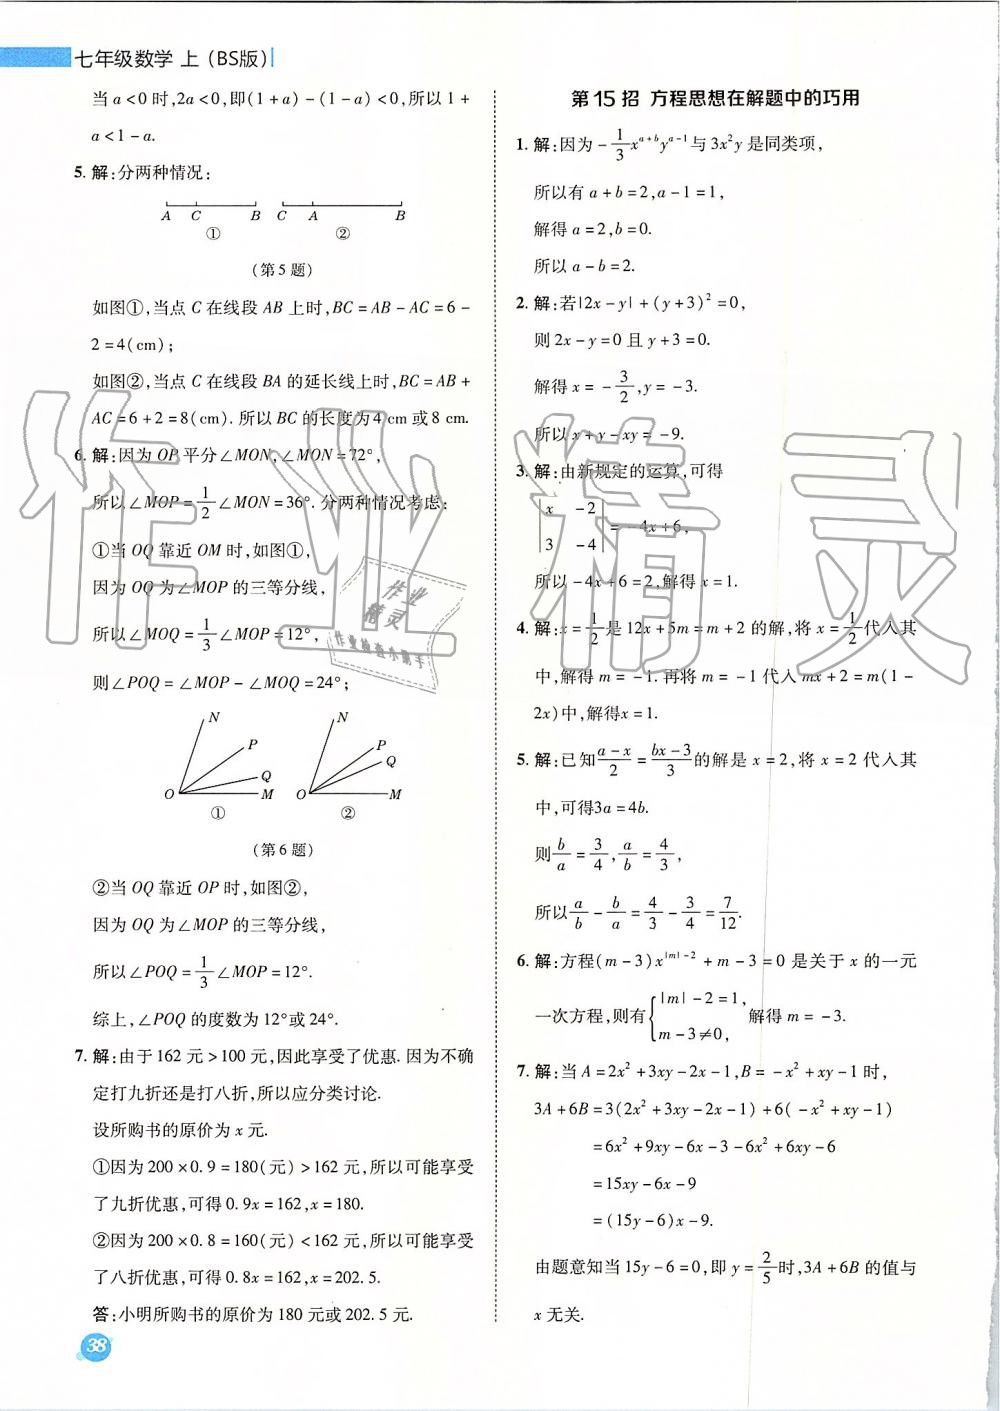 七年级数学 上（BS版）
当 a<0 时,2a<0,即(1+a)-(1-a)<0,所以 1+
a<1-a.
5. 解:分两种情况:
A C B C A B
① ②
(第 5 题)
如图①,当点 C 在线段 AB 上时,BC=AB-AC=6-
2=4(cm);
如图②,当点 C 在线段 BA 的延长线上时,BC=AB+
AC=6+2=8(cm). 所以 BC 的长度为 4 cm 或 8 cm.
6. 解:因为 OP 平分∠MON,∠MON=72°,
所以∠MOP=1/2∠MON=36°. 分两种情况考虑:
①当 OQ 靠近 OM 时,如图①,
因为 OQ 为∠MOP 的三等分线,
所以∠MOQ=1/3∠MOP=12°,
则∠POQ=∠MOP-∠MOQ=24°;
N P Q M O N P Q M O
① ②
(第 6 题)
②当 OQ 靠近 OP 时,如图②,
因为 OQ 为∠MOP 的三等分线,
所以∠POQ=1/3∠MOP=12°.
综上,∠POQ 的度数为 12°或 24°.
7. 解:由于 162 元>100 元,因此享受了优惠. 因为不确
定打九折还是打八折,所以应分类讨论.
设所购书的原价为 x 元.
①因为 200×0.9=180(元)>162 元,所以可能享受
了九折优惠,可得 0.9x=162,x=180.
②因为 200×0.8=160(元)<162 元,所以可能享受
了八折优惠,可得 0.8x=162,x=202.5.
答:小明所购书的原价为 180 元或 202.5 元.
38
第 15 招 方程思想在解题中的巧用
1. 解:因为-1/3x^(a+b)y^(a-1)与 3x²y 是同类项,
所以有 a+b=2,a-1=1,
解得 a=2,b=0.
所以 a-b=2.
2. 解:若|2x-y|+(y+3)²=0,
则 2x-y=0 且 y+3=0.
解得 x=-3/2,y=-3.
所以 x+y-xy=-9.
3. 解:由新规定的运算,可得
|x -2|
|3 -4| =-4x+6,
所以-4x+6=2,解得 x=1.
4. 解:x=1/2是 12x+5m=m+2 的解,将 x=1/2代入其
中,解得 m=-1. 再将 m=-1 代入 mx+2=m(1-
2x)中,解得x=1.
5. 解:已知(a-x)/2=(bx-3)/3的解是 x=2,将 x=2 代入其
中,可得3a=4b.
则b/a=3/4,a/b=4/3,
所以a/b-b/a=4/3-3/4=7/12.
6. 解:方程(m-3)x^(|m|-2)+m-3=0 是关于 x 的一元
一次方程,则有{|m|-2=1, m-3≠0, 解得 m=-3.
7. 解:当 A=2x²+3xy-2x-1,B=-x²+xy-1 时,
3A+6B=3(2x²+3xy-2x-1)+6(-x²+xy-1)
=6x²+9xy-6x-3-6x²+6xy-6
=15xy-6x-9
=(15y-6)x-9.
由题意知当 15y-6=0,即 y=2/5时,3A+6B 的值与
x 无关.
作业精灵
作业
精灵
作业检查小助手